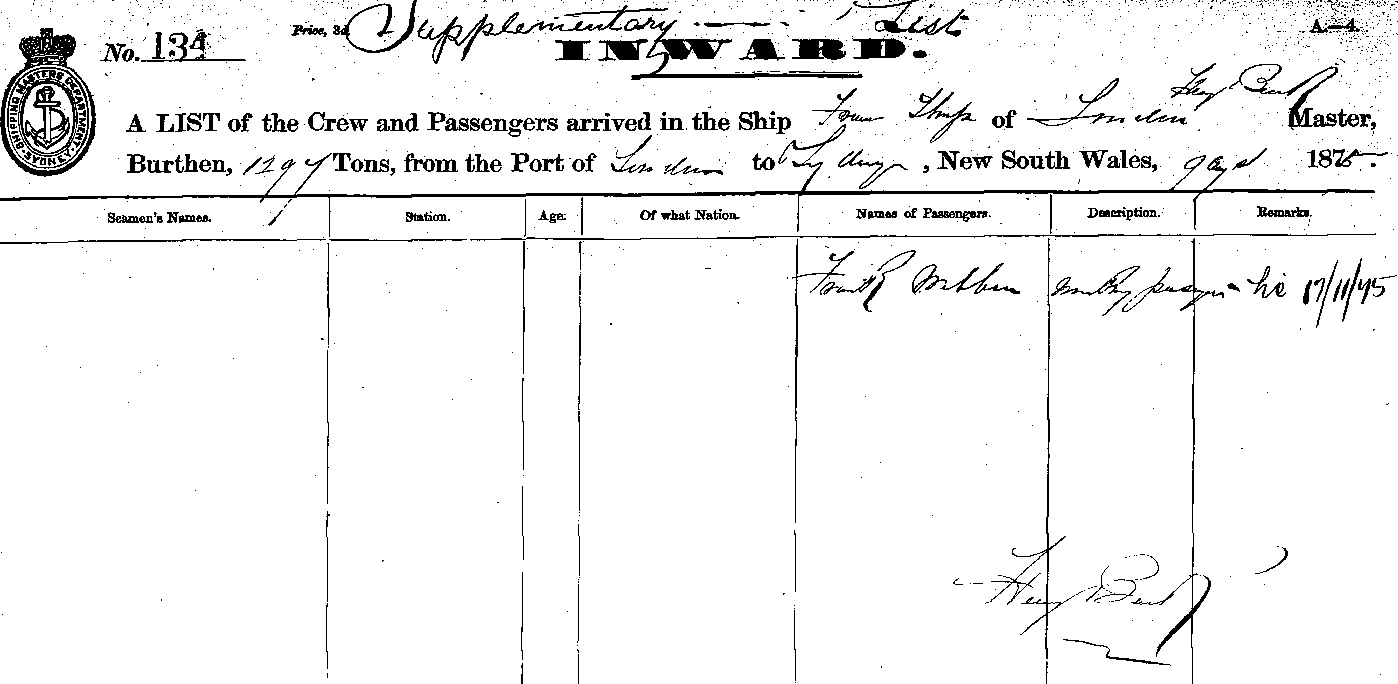 Supplementary List
No. 134 Price, 3d. INWARD. A—4.
SHIPPING MASTERS DEPARTMENT SYDNEY
Henry Bent
A LIST of the Crew and Passengers arrived in the Ship of London Master,
Burthen, 1297 Tons, from the Port of London to Sydney, New South Wales, 1875.
Seamen's Names. Station. Age. Of what Nation. Names of Passengers. Description. Remarks.
Frank 17/11/75
Henry Bent